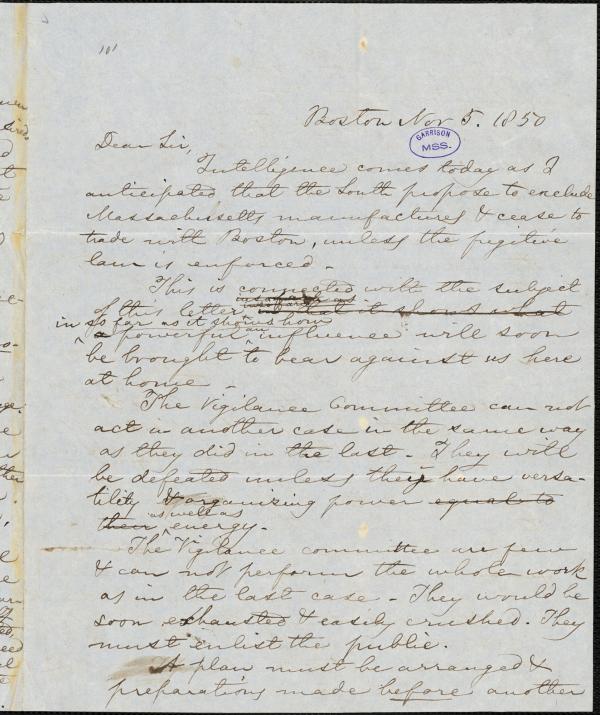 Boston Nov 5. 1850
GARRISON
MSS.
Dear Sir,
Intelligence comes today as I
anticipated that the South propose to exclude
Massachusetts manufactures & cease to
trade with Boston, unless the fugitive
law is enforced.
This is connected with the subject
of this letter in that it shows what
in so far as it shows how
a powerful an influence will soon
be brought to bear against us here
at home.
The Vigilance Committee can not
act in another case in the same way
as they did in the last. They will
be defeated unless they have versa-
tility & organizing power equal to
as well as
their energy.
The Vigilance committee are few
& can not perform the whole work
as in the last case. They would be
soon exhausted & easily crushed. They
must enlist the public.
A plan must be arranged &
preparations made before another